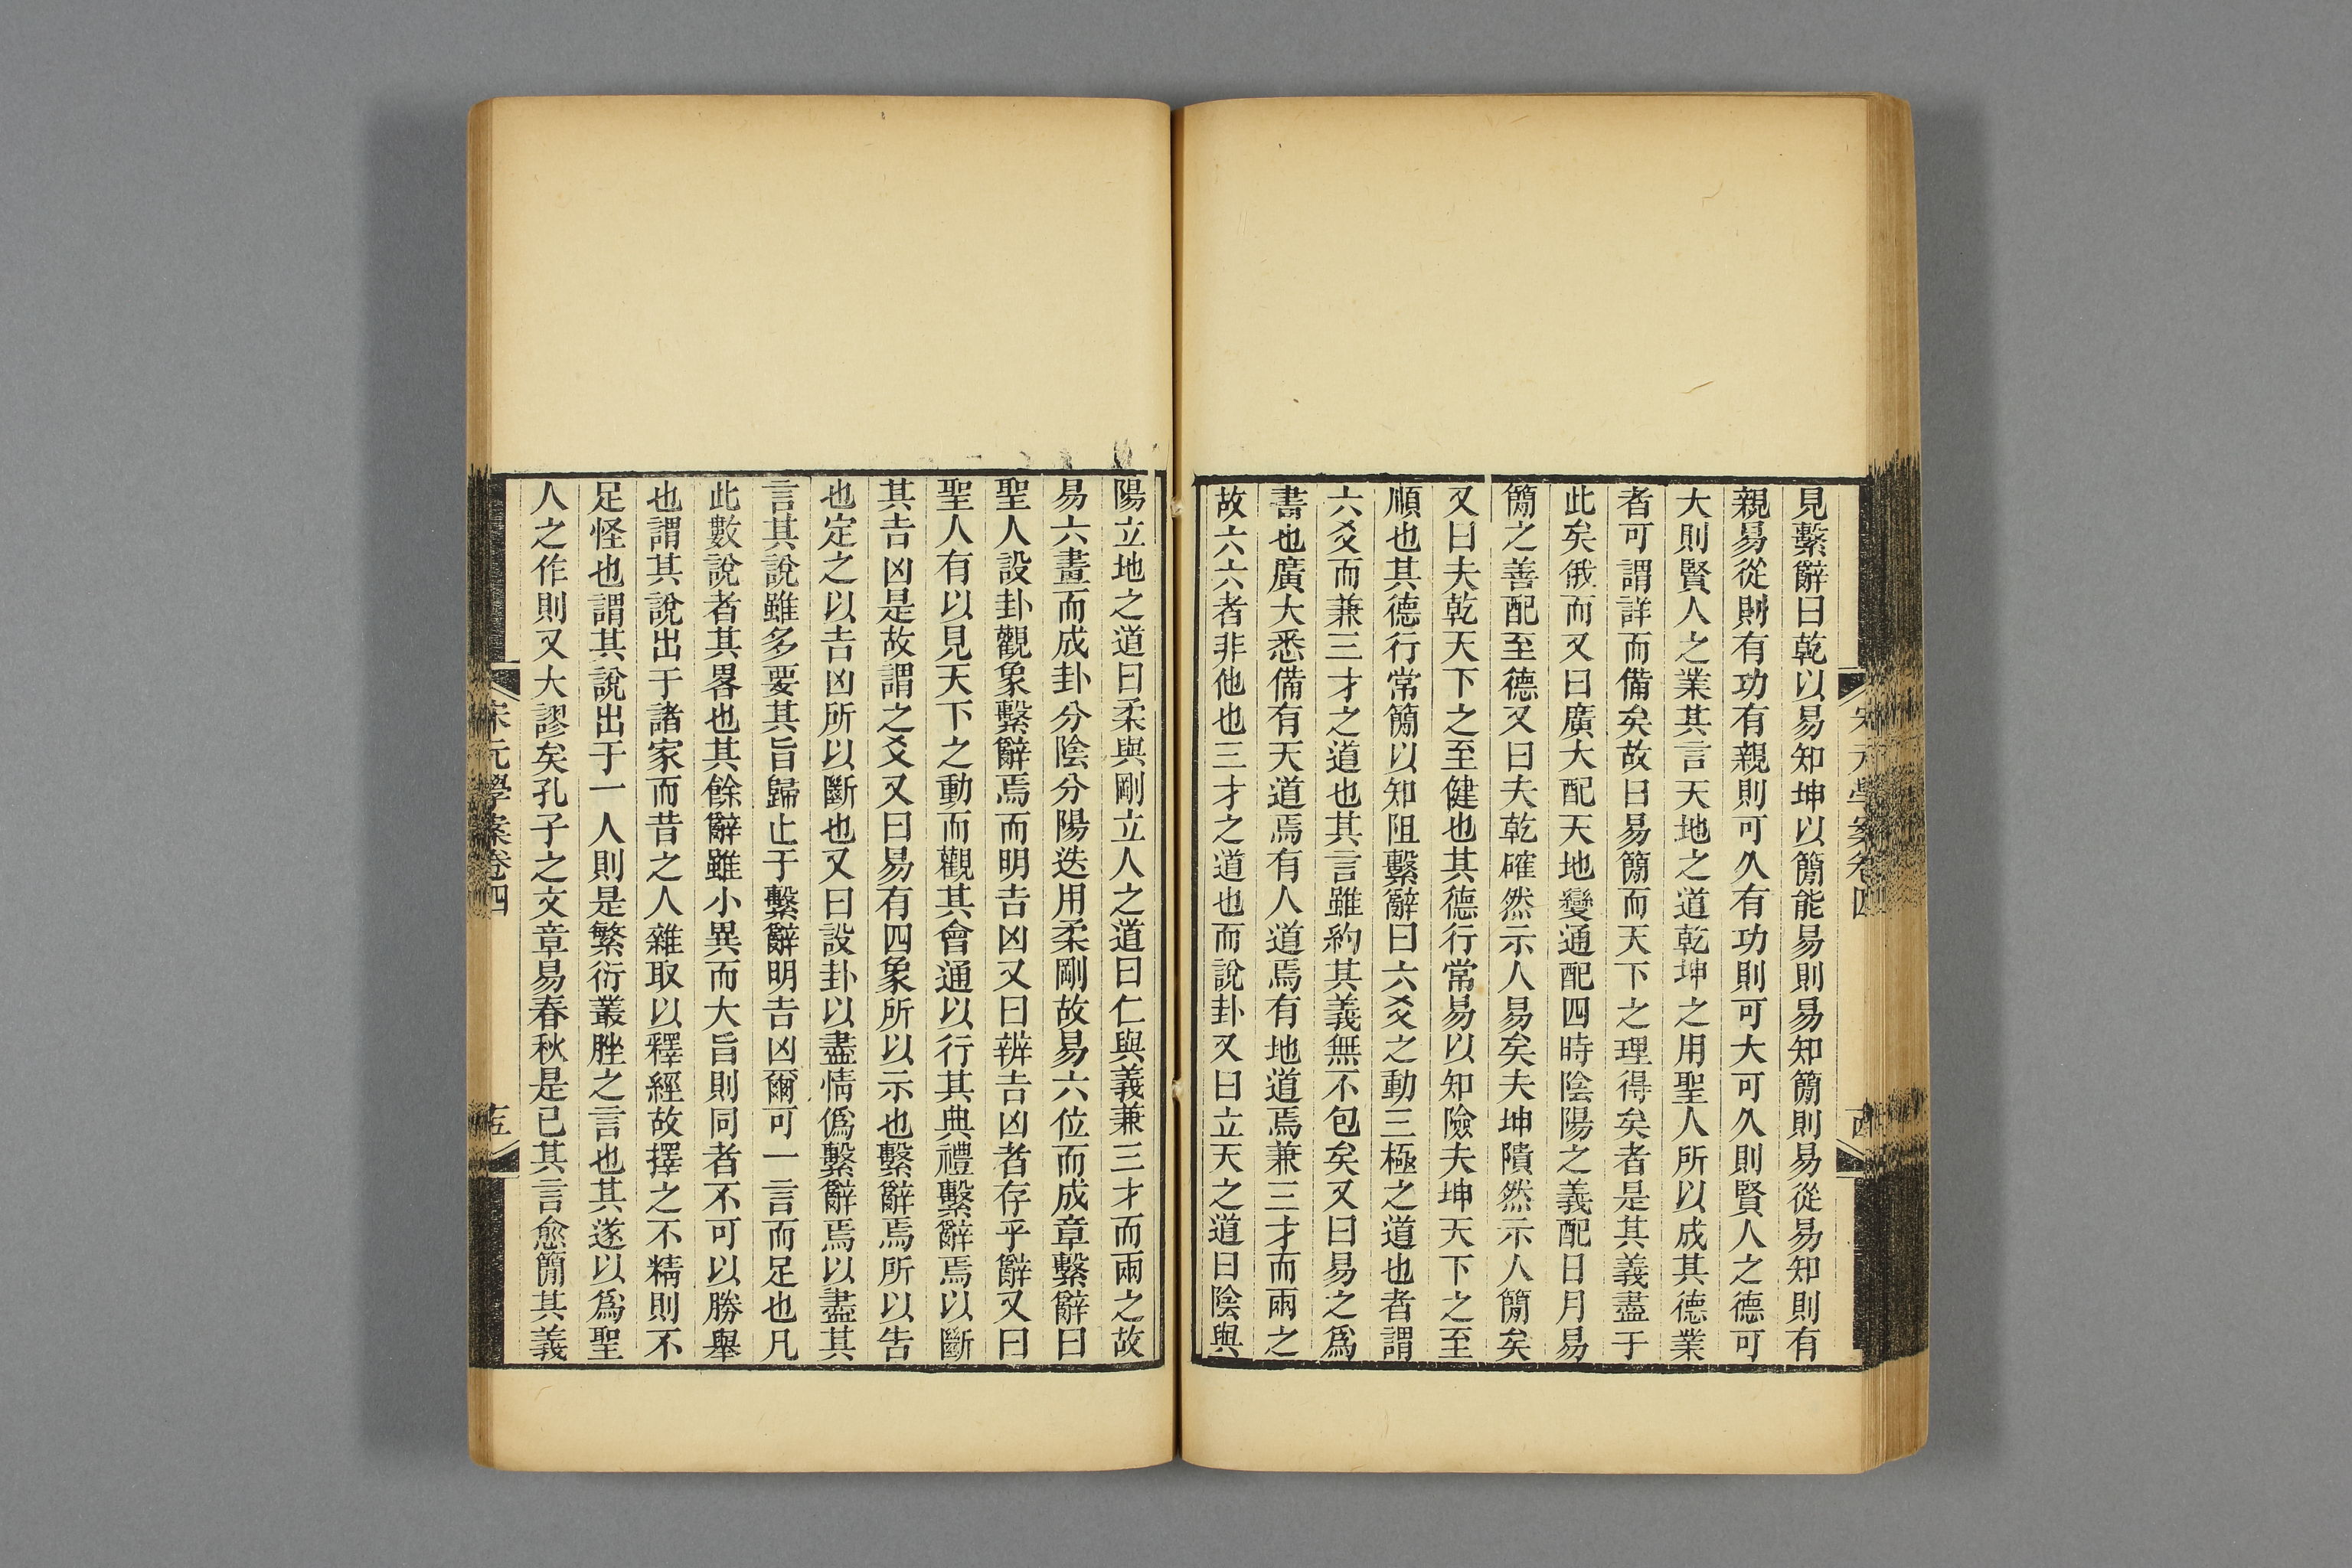 見繫辭曰乾以易知坤以簡能易則易知簡則易從易知則有
親易從則有功有親則可久有功則可大可久則賢人之德可
大則賢人之業其言天地之道乾坤之用聖人所以成其德業
者可謂詳而備矣故曰易簡而天下之理得矣者是其義盡于
此矣俄而又曰廣大配天地變通配四時陰陽之義配日月易
簡之善配至德又曰夫乾確然示人易矣夫坤隤然示人簡矣
又曰夫乾天下之至健也其德行常易以知險夫坤天下之至
順也其德行常簡以知阻繫辭曰六爻之動三極之道也者謂
六爻而兼三才之道也其言雖約其義無不包矣又曰易之爲
書也廣大悉備有天道焉有人道焉有地道焉兼三才而兩之
故六六者非他也三才之道也而說卦又曰立天之道曰陰與
陽立地之道曰柔與剛立人之道曰仁與義兼三才而兩之故
易六畫而成卦分陰分陽迭用柔剛故易六位而成章繫辭曰
聖人設卦觀象繫辭焉而明吉凶又曰辨吉凶者存乎辭又曰
聖人有以見天下之動而觀其會通以行其典禮繫辭焉以斷
其吉凶是故謂之爻又曰易有四象所以示也繫辭焉所以告
也定之以吉凶所以斷也又曰設卦以盡情僞繫辭焉以盡其
言其說雖多要其旨歸止于繫辭明吉凶爾可一言而足也凡
此數說者其畧也其餘辭雖小異而大旨則同者不可以勝舉
也謂其說出于諸家而昔之人雜取以釋經故擇之不精則不
足怪也謂其說出于一人則是繁衍叢脞之言也其遂以爲聖
人之作則又大謬矣孔子之文章易春秋是已其言愈簡其義
宋元學案卷四